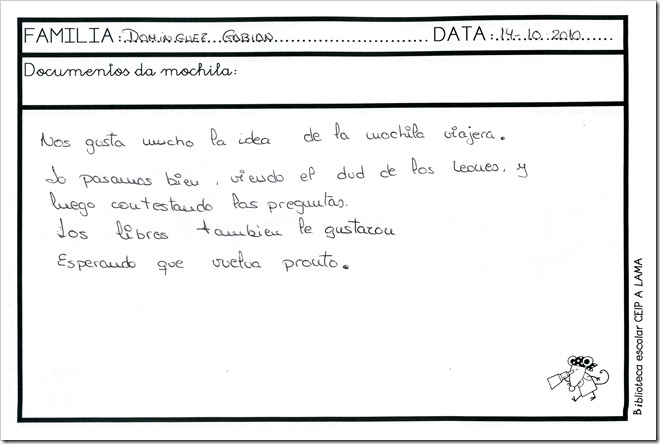 FAMILIA: DOMINGUEZ GOBION DATA: 14-10-2010
Documentos da mochila:
Nos gusta mucho la idea de la mochila viajera.
Lo pasamos bien, viendo el dvd de los leones, y
luego contestando las preguntas.
Los libros tambien le gustaron
Esperando que vuelva pronto.
Biblioteca escolar CEIP A LAMA